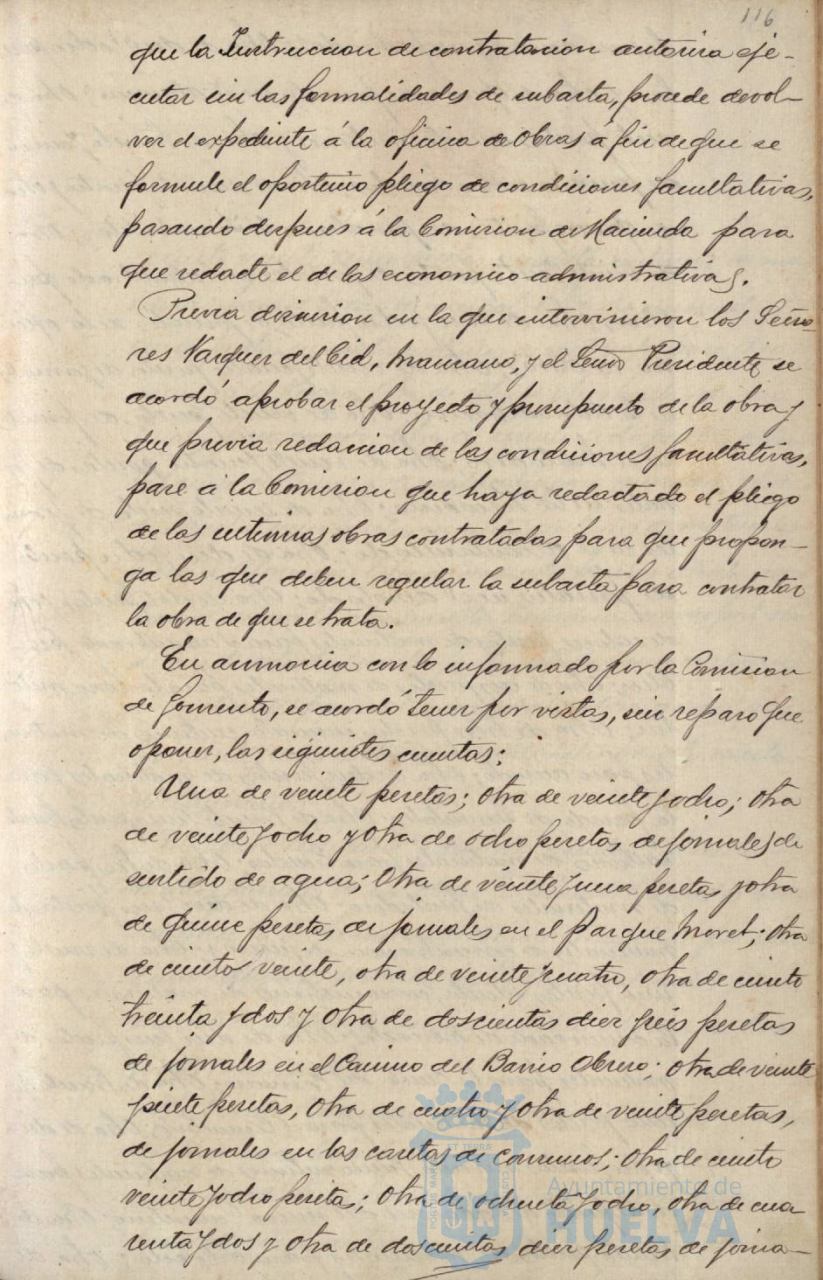 116
que la Instruccion de contratacion autoriza eje-
cutar sin las formalidades de subasta, procede devol-
ver el expediente á la oficina de Obras á fin de que se
formule el oportuno pliego de condiciones facultativas,
pasando despues á la Comision de Hacienda para
que redacte el de las economico-administrativas.
Previa discusion en la que intervinieron los Seño-
res Vazquez del Cid, Manzano, y el Señor Presidente se
acordó aprobar el proyecto y presupuesto de la obra y
que previa redaccion de las condiciones facultativas,
pase á la Comision que haya redactado el pliego
de las ultimas obras contratadas para que propon-
ga las que deben regular la subasta para contratar
la obra de que se trata.
En armonia con lo informado por la Comision
de Fomento, se acordó tener por vistas, sin reparo que
oponer, las siguientes cuentas:
Una de veinte pesetas; otra de veinte y ocho; otra
de veinte y ocho y otra de ocho pesetas de jornales de
surtido de agua; Otra de veinte y una pesetas y otra
de quince pesetas de jornales en el Parque Moret; otra
de ciento veinte, otra de veinte y cuatro, otra de ciento
treinta y dos y otra de doscientas diez y seis pesetas
de jornales en el Camino del Barrio Obrero; otra de veinte
y siete pesetas, otra de cuatro y otra de veinte pesetas,
de jornales en las casetas de consumos; otra de ciento
veinte y ocho pesetas; otra de ochenta y ocho, otra de cua-
renta y dos y otra de doscientas diez pesetas de jorna-
Ayuntamiento de
HUELVA